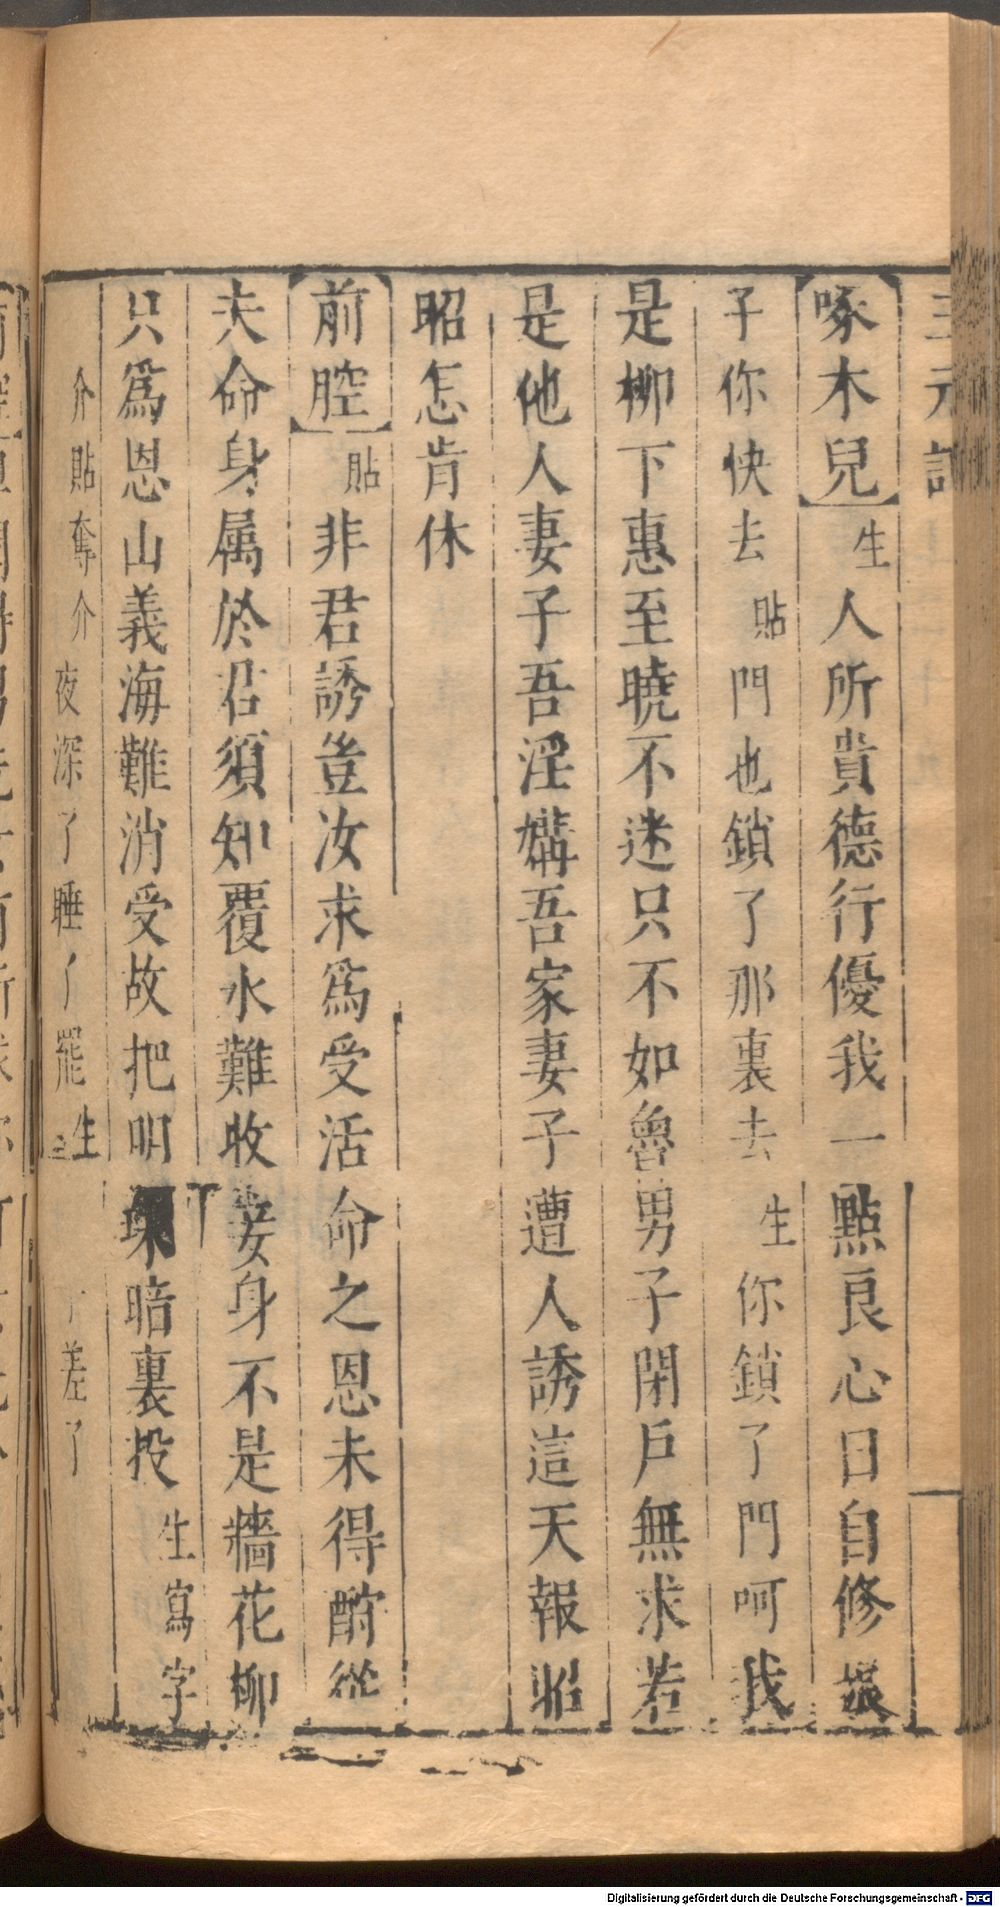 三元記
【啄木兒】生人所貴德行優我一點良心日自修娘
子你快去貼門也鎖了那裏去生你鎖了門呵我
是柳下惠至曉不迷只不如魯男子閉戶無求若
是他人妻子吾淫媾吾家妻子遭人誘這天報昭
昭怎肯休
【前腔】貼非君誘豈汝求爲受活命之恩未得酧從
夫命身属於君須知覆水難收妾身不是牆花柳
只爲恩山義海難消受故把明珠暗裏投生寫字
介貼奪介夜深了睡了罷生差了
Digitalisierung gefördert durch die Deutsche Forschungsgemeinschaft - DFG